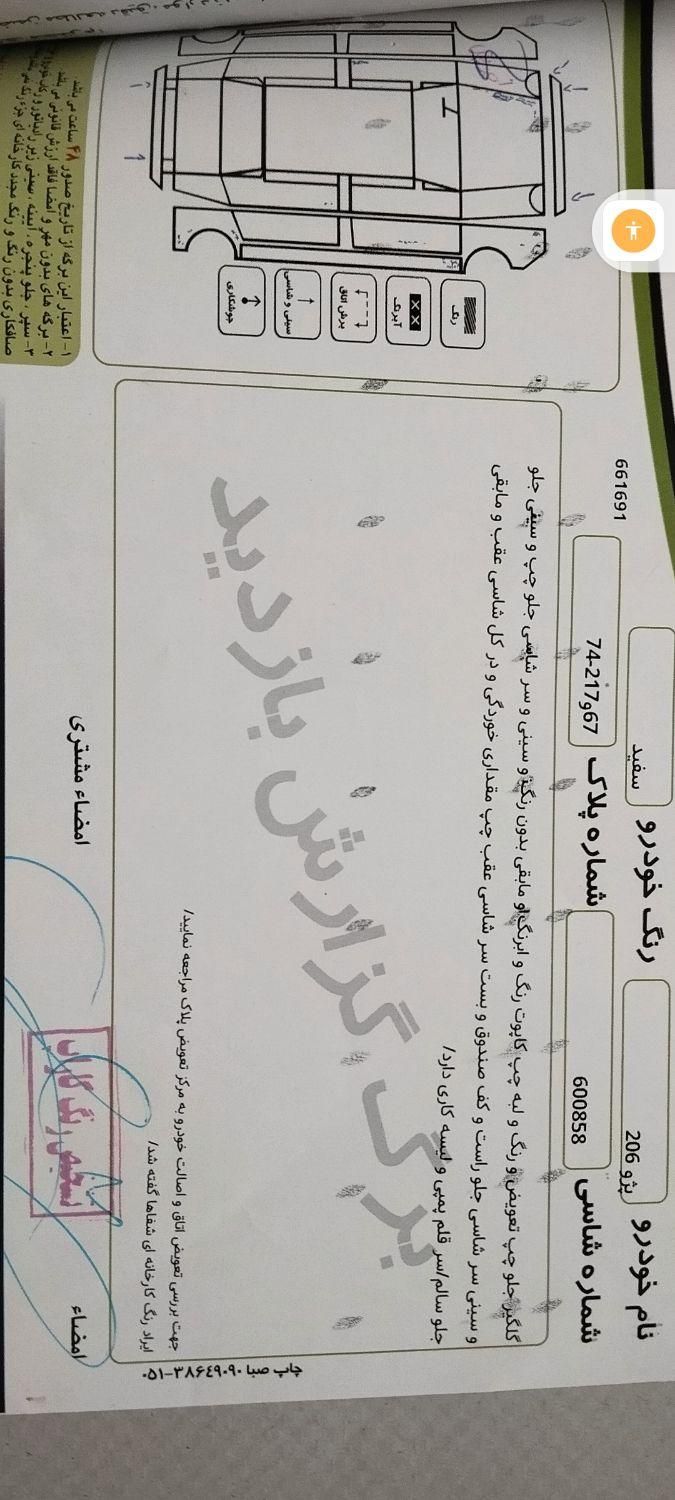 نام خودرو
پژو 206
رنگ خودرو
سفید
شماره شاسی
600858
شماره پلاک
67و217-74
661691
گلگیر جلو چپ تعویض و رنگ و لبه چپ کاپوت رنگ و ابرنگ و مابقی بدون رنگ/و سینی و سر شاسی جلو چپ و سینی جلو
و سینی سر شاسی جلو راست و کف صندوق و بست سر شاسی عقب چپ مقداری خوردگی و در کل شاسی عقب و مابقی
جلو سالم/سر قلم پمپی و لیسه کاری دارد/
برگ گزارش بازدید
جهت بررسی تعویض اتاق و اصالت خودرو به مرکز تعویض پلاک مراجعه نمایید/
ایراد رنگ کارخانه ای شفاها گفته شد/
رنگ
آبرنگ
برش اتاق
سینی و شاسی
جوشکاری
۱- اعتبار این برگه از تاریخ صدور ۴۸ ساعت می باشد
۲- برگه های بدون مهر و امضا فاقد ارزش قانونی می باشد
۳- سپر، جلو پنجره، آیینه، سینی زیر رادیاتور و رکاب
صافکاری بدون رنگ و رنگ مجدد کارخانه ای جزء رنگ
امضاء
امضاء مشتری
چاپ صبا ۳۸۶۴۹۰۹۰-۰۵۱